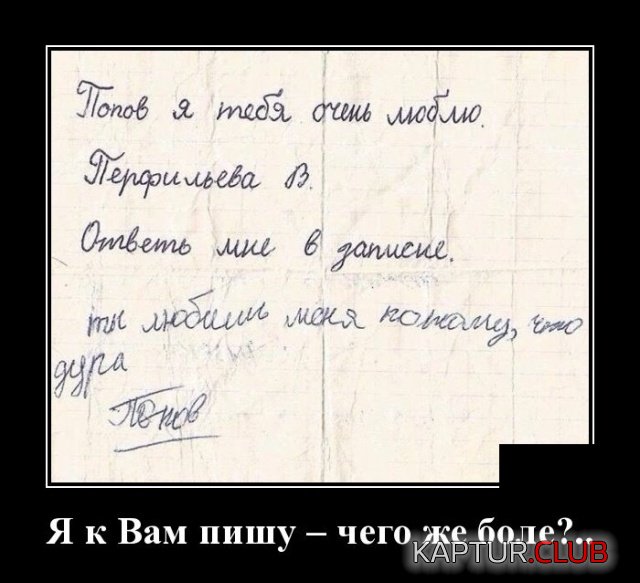 Попов я тебя очень люблю.
Перфильева В.
Ответь мне в записке.
ты любишь меня потому, что
дура
Попов
Я к Вам пишу – чего же боле?..
KAPTUR.CLUB